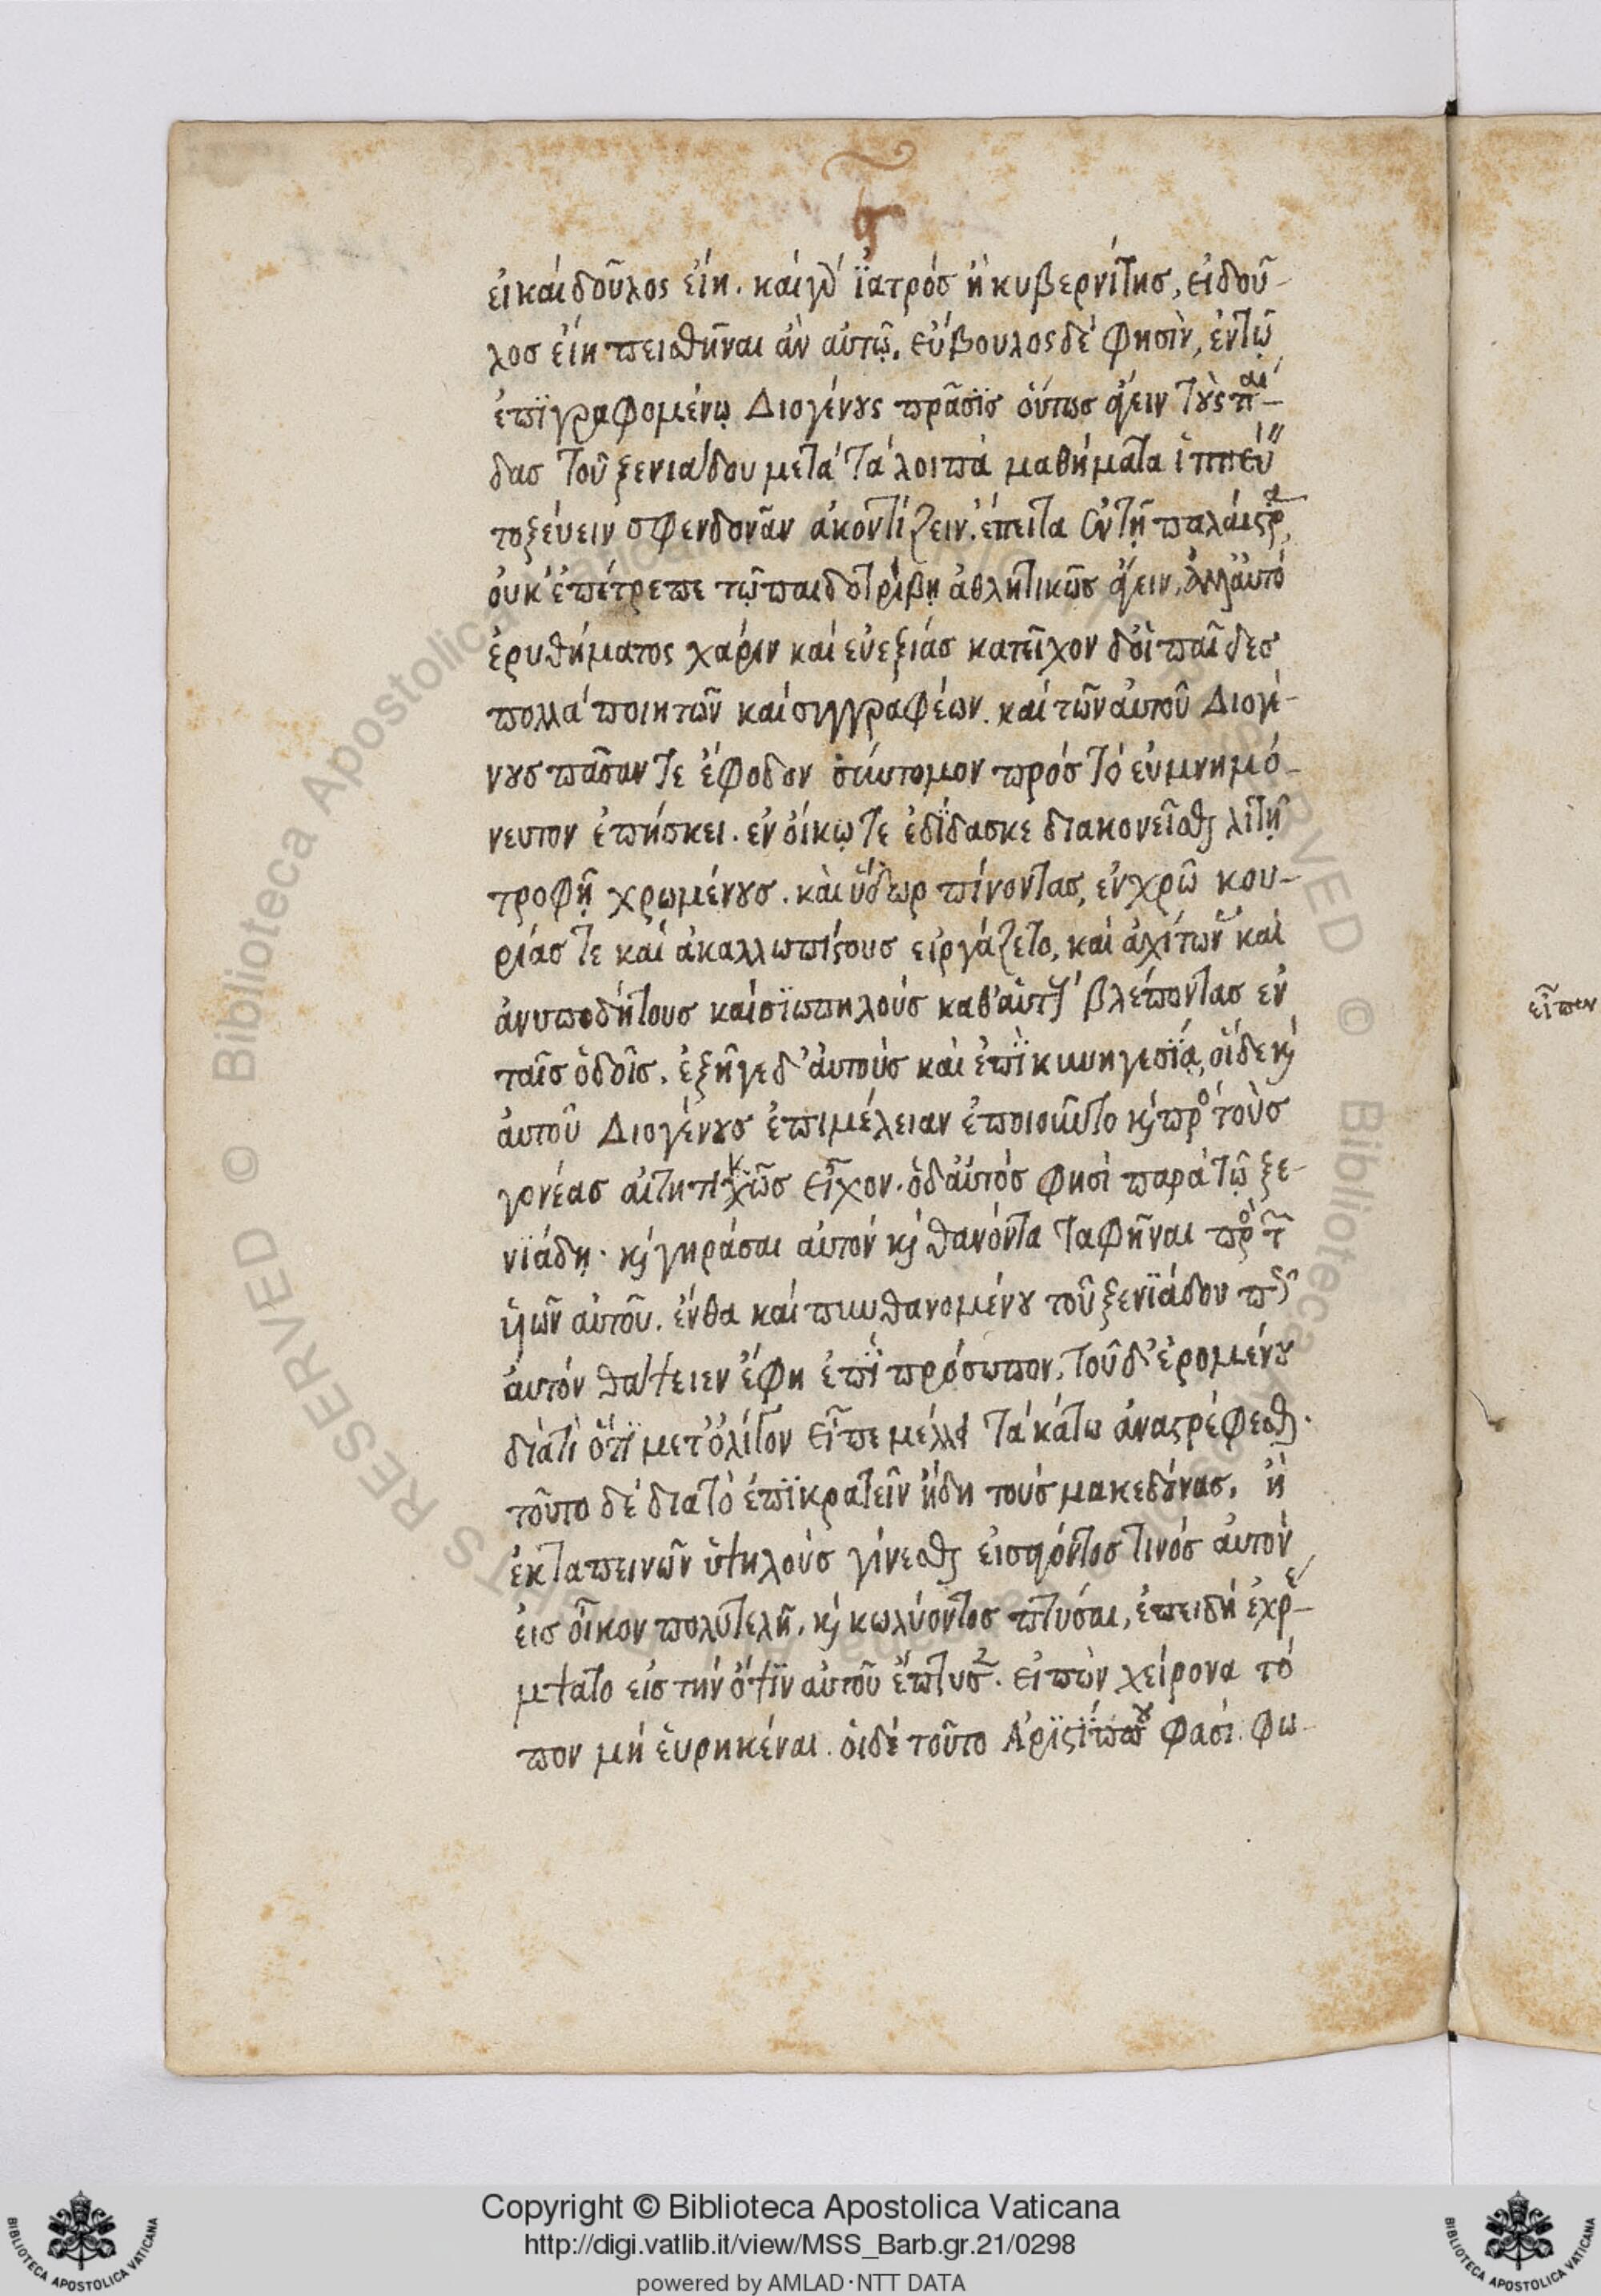 ϛ
εἰ καὶ δοῦλος εἴη. καὶ γὰρ ἰατρὸς ἢ κυβερνίτης, εἰ δοῦ-
λος εἴη πεισθῆναι ἂν αὐτῷ. εὔβουλος δέ φησὶν, ἐν τῷ
ἐπιγραφομένῳ Διογένους πρᾶσις οὕτως ἄγειν τοὺς παῖ-
δας τοῦ ξενιάδου μετὰ τὰ λοιπὰ μαθήματα ἱππεύειν
τοξεύειν σφενδονᾶν ἀκοντίζειν. ἔπειτα ἐν τῇ παλαίστρᾳ,
οὐκ ἐπέτρεπε τῷ παιδοτρίβῃ ἀθλητικῶς ἄγειν, ἀλλ' αὐτὸ
ἐρυθήματος χάριν καὶ εὐεξίας κατεῖχον δ' οἱ παῖδες
πολλὰ ποιητῶν καὶ συγγραφέων. καὶ τῶν αὐτοῦ Διογέ-
νους πᾶσαν τε ἔφοδον σύντομον πρὸς τὸ εὐμνημό-
νευτον ἐπήσκει. ἐν οἴκῳ τε ἐδίδασκε διακονεῖσθαι λιτῇ
τροφῇ χρωμένους. καὶ ὕδωρ πίνοντας, ἐν χρῷ κου-
ρίας τε καὶ ἀκαλλωπίστους εἰργάζετο, καὶ ἀχίτων καὶ
ἀνυποδήτους καὶ σιωπηλοὺς καθ' αὑτοὺς βλέποντας ἐν
ταῖς ὁδοῖς. ἐξῆγε δ' αὐτοὺς καὶ ἐπὶ κυνηγεσίᾳ, οἱ δὲ καὶ
αὐτοῦ Διογένους ἐπιμέλειαν ἐποιοῦντο καὶ πρὸς τοὺς
γονέας αἰτητικῶς εἶχον. ὁ δ' αὐτός φησι παρὰ τῷ ξε-
νιάδῃ. καὶ γηρᾶσαι αὐτὸν καὶ θανόντα ταφῆναι πρὸς τῶν
υἱῶν αὐτοῦ. ἔνθα καὶ πυνθανομένου τοῦ ξενιάδου πῶς
αὐτὸν θάψειεν ἔφη ἐπὶ πρόσωπον, τοῦ δ' ἐρομένου
διὰ τί ὅτι μετ' ὀλίγον εἶπε μέλλει τὰ κάτω ἀναστρέφεσθαι.
τοῦτο δὲ διὰ τὸ ἐπικρατεῖν ἤδη τοὺς μακεδόνας, ἢ
ἐκ ταπεινῶν ὑψηλοὺς γίνεσθαι εἰσαγόντος τινὸς αὐτὸν
εἰς οἶκον πολυτελῆ, καὶ κωλύοντος πτύσαι, ἐπειδὴ ἐχρέ-
μψατο εἰς τὴν ὄψιν αὐτοῦ ἔπτυσεν. εἰπὼν χείρονα τό
πον μὴ εὑρηκέναι. οἱ δὲ τοῦτο Ἀριστίππου φασί. φω-
εἶπεν
Copyright © Biblioteca Apostolica Vaticana
http://digi.vatlib.it/view/MSS_Barb.gr.21/0298
powered by AMLAD·NTT DATA